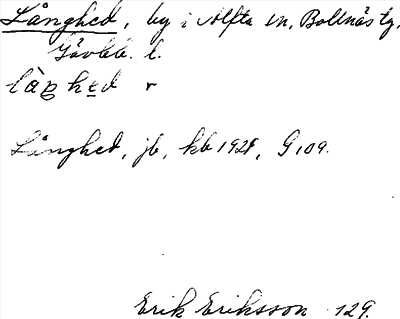 Långhed, by i Alfta sn, Bollnäs tg.
Gävleb. l.
làŋhed r
Långhed, jb, kb 1921, G 109.
Erik Eriksson 129.